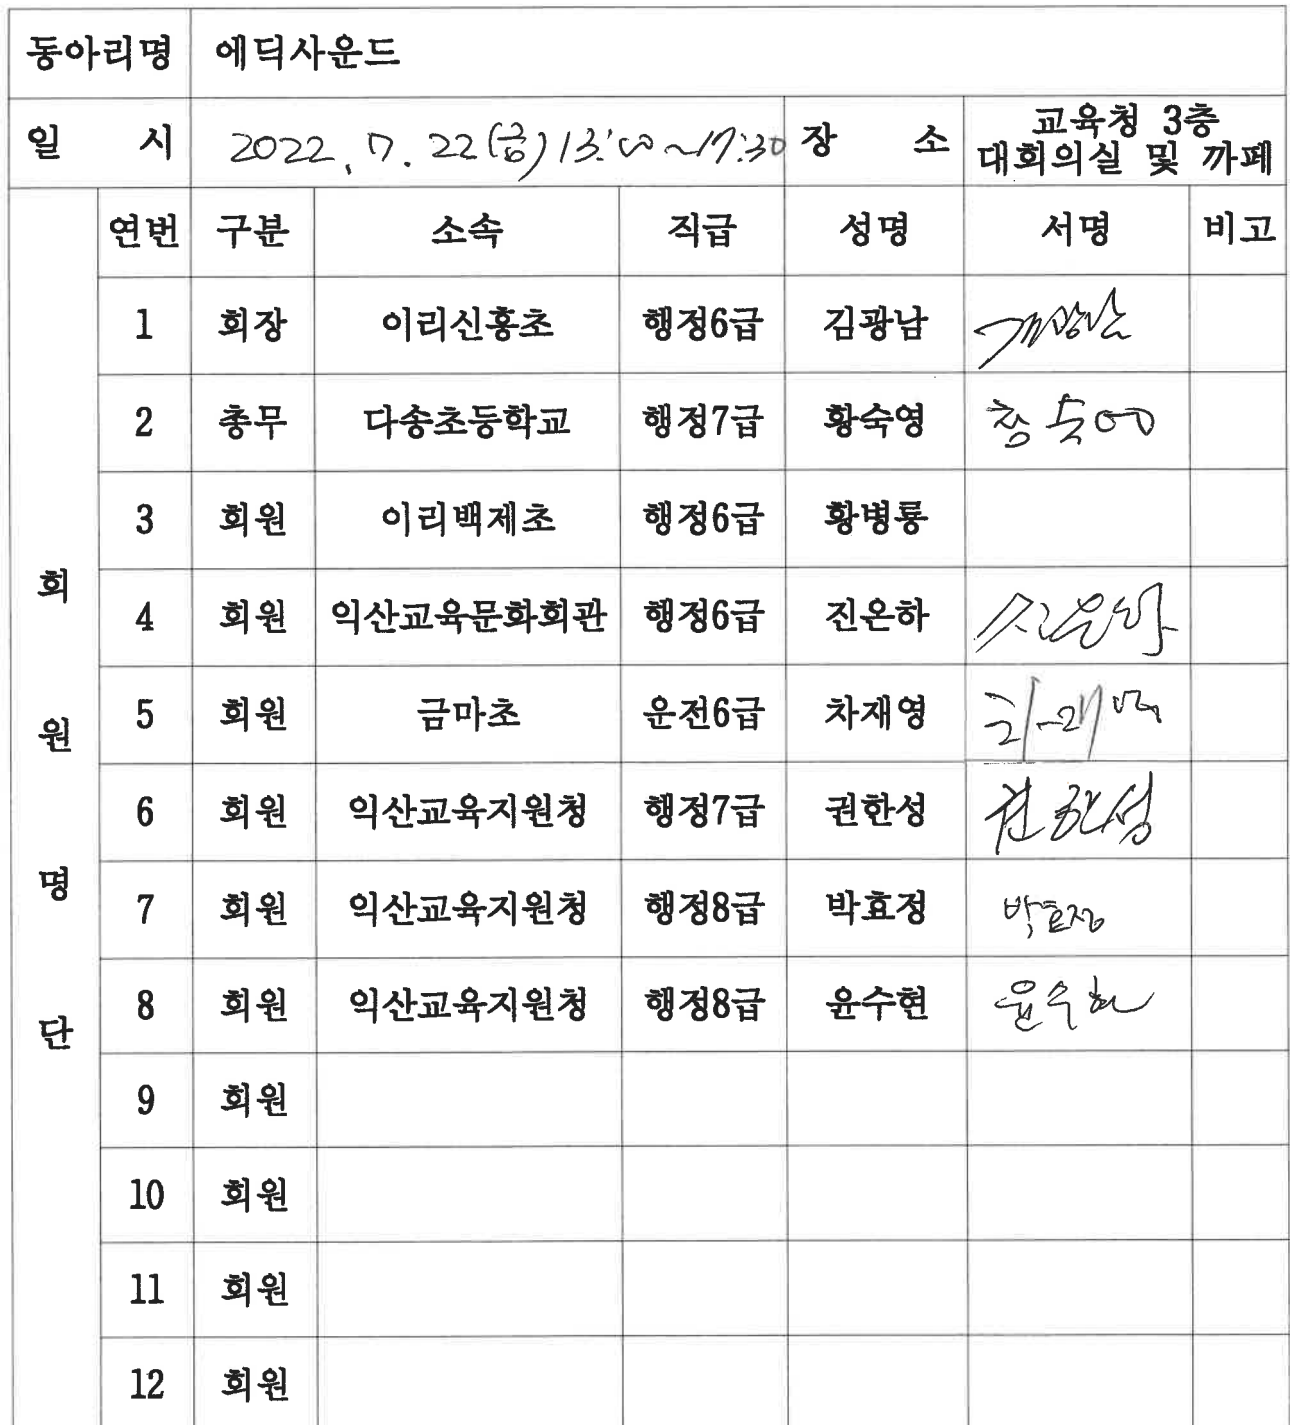 동아리명 에딕사운드
일 시 2022. 7. 22(금) 13:00~17:30 장 소 교육청 3층
대회의실 및 까페
회원명단
연번 구분 소속 직급 성명 서명 비고
1 회장 이리신흥초 행정6급 김광남
2 총무 다송초등학교 행정7급 황숙영
3 회원 이리백제초 행정6급 황병룡
4 회원 익산교육문화회관 행정6급 진은하 진은하
5 회원 금마초 운전6급 차재영
6 회원 익산교육지원청 행정7급 권한성 권한성
7 회원 익산교육지원청 행정8급 박효정 박효정
8 회원 익산교육지원청 행정8급 윤수현 윤수현
9 회원
10 회원
11 회원
12 회원